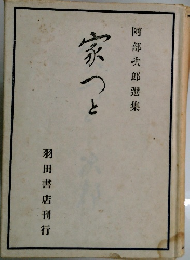 阿部次郎選集
家つと
羽田書店刊行